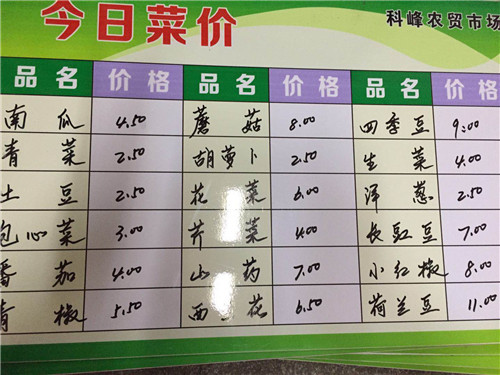 今日菜价 科峰农贸市场
品名 价格 品名 价格 品名 价格
南瓜 4.50 蘑菇 8.00 四季豆 9.00
青菜 2.50 胡萝卜 2.50 生菜 4.00
土豆 2.50 花菜 6.00 洋葱 2.50
包心菜 3.00 芹菜 4.00 长豇豆 7.00
番茄 4.00 山药 7.00 小红椒 8.00
青椒 5.50 西花 6.50 荷兰豆 11.00